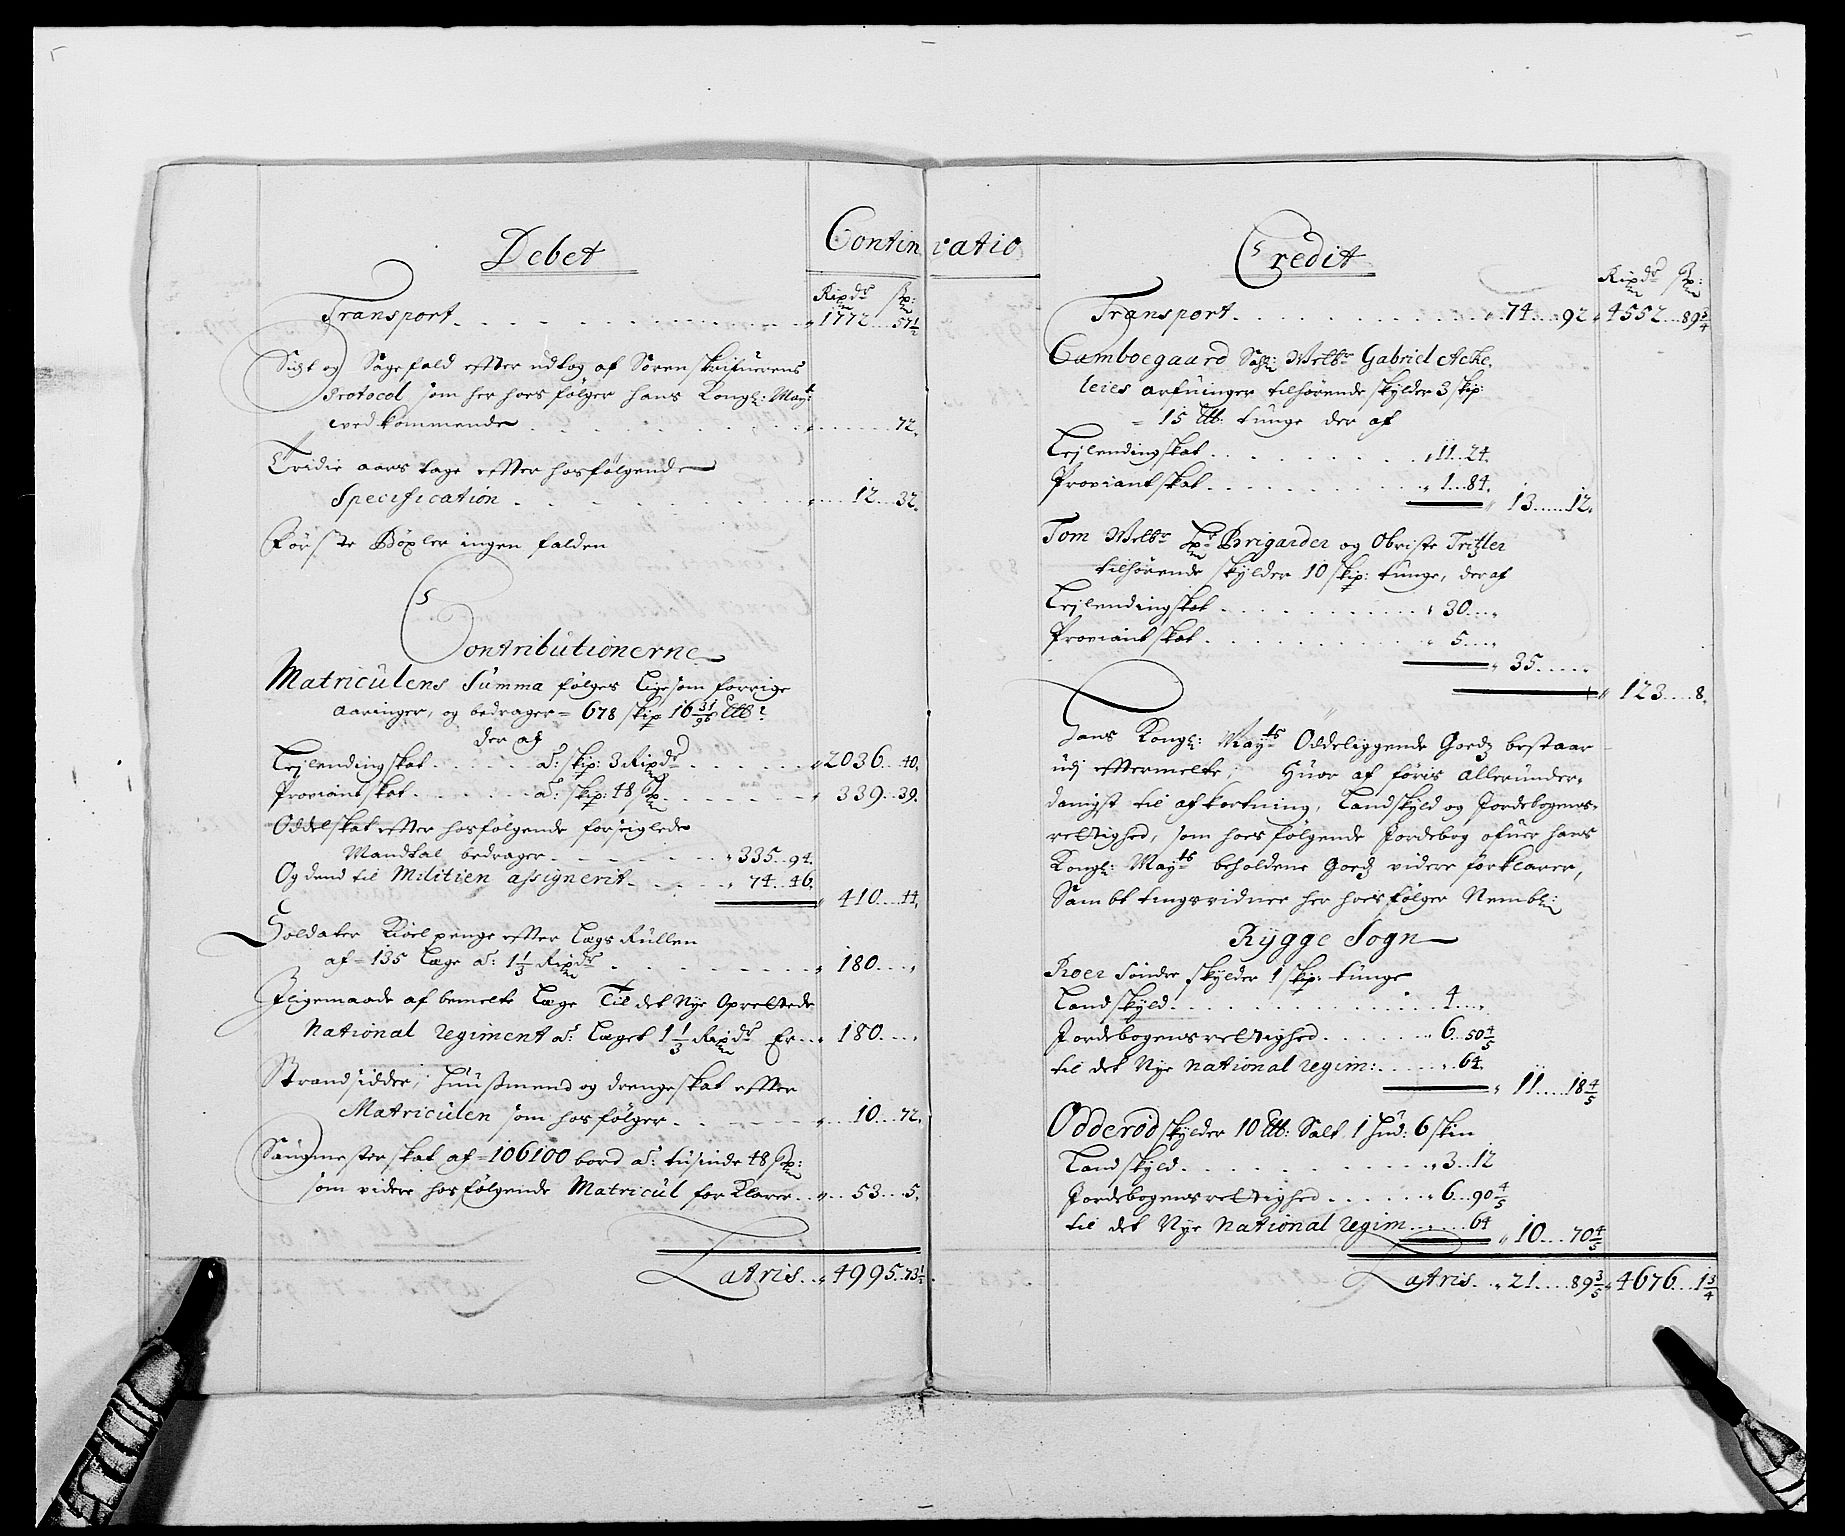 Debet
Continuatio
Rixdr ſk:
Transport . . . 1772 . . 57 1/2
Sigt og Sagefald efter udtog af Sorenskrifuerens
Protocol som her hoes følger hans Kongl: Mayt:
ved kommende . . . 72.
Tridie aars tage efter hosfølgende
Specification . . . 12 . . 32.
Første Bøxler ingen falden
Contributionerne
Matriculens Summa følges ligesom forrige
aaringer, og bedrager = 678 skip 16 31/96 Lb:
der af
Leylendingskat . . . a: skip: 3 Rixdr . . . 2036 . . 40.
Proviantskat . . . a: skip: 48 sk . . . 339 . . 39.
Oddelskat efter hosfølgende forseiglede
Mandtal bedrager . . . 335 . . 94.
Og dend til Militien assignerit . . . 74 . . 46.
410 . . 44.
Soldater Kioelpenge efter Lægs Rullen
af = 135 Læge a: 1 1/3 Rixdr . . . 180 . . .
Iligemaade af bemelte Læge Til det Nye Oprettede
National Regiment a: Læget 1 1/3 Rixdr Er . . 180 . . .
Strandsidder, Huusmend og drengeskat efter
Matriculen som hosfølger . . . 10 . . 72.
Saugmesterskat af = 106100 bord a: tusinde 48 sk:
som videre hosfølgende Matricul forklarer . . 53 . . 5.
Latris . . 4995 . . 73 1/2
Credit
Rixdr ſk:
Transport . . . 74 . . 92 4552 . . 89 3/4
Camboegaard Sal: Welbr Gabriel Acke,
leies arfuinger tilhørende skylder 3 skip:
= 15 Lb: tunge der af
Leylendingskat . . . 11 . . 24.
Proviantskat . . . 1 . . 84.
13 . . . 12.
Tom Welbr Hr Brigarder og Obriste Tritzler
tilhørende skylder 10 skip: tunge, deraf
Leylendingskat . . . 30 . . .
Proviantskat . . . 5 . . .
35 . . .
123 . . . 8.
Hans Kongl: Mayts Oddeliggende Goedz bestaar
udj eftermelte; Huor af føris allerunder,
danigst til afkortning, Landskyld og Jordebogens,
rettighed, som hoesfølgende Jordebog ofuer hans
Kongl: Mayts beholdene Goedz videre forklarer,
Sambt tingsvidner her hoesfølger Nembl:
Rygge Sogn
Roer Søndre skylder 1 skip: tunge
Landskyld . . . 4 . . .
Jordebogensrettighed . . . 6 . . 50 4/5
til det Nye National regim: . . . 64.
11 . . . 18 4/5
Odderød skylder 10 Lb: Salt 1 Hud: 6 skin
Landskyld . . . 3 . . 12
Jordebogensrettighed . . . 6 . . 90 4/5
til det Nye National Regim . . . 64
10 . . . 70 4/5
Latris . . 21 . . . 89 3/5 4676 . . 1 3/4